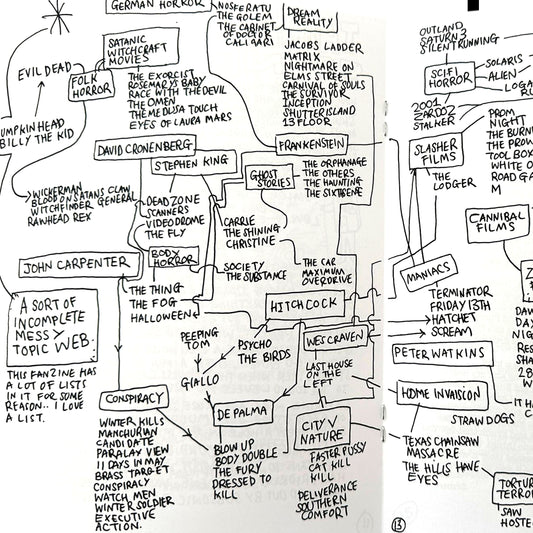 GERMAN HORROR
NOSFERATU
THE GOLEM
THE CABINET
OF DOCTOR
CALIGARI
DREAM
REALITY
JACOBS LADDER
MATRIX
NIGHTMARE ON
ELMS STREET
CARNIVAL OF SOULS
THE SURVIVOR
INCEPTION
SHUTTERISLAND
13 FLOOR
SATANIC
WITCHCRAFT
MOVIES
THE EXORCIST
ROSEMARYS BABY
RACE WITH THE DEVIL
THE OMEN
THE MEDUSA TOUCH
EYES OF LAURA MARS
EVIL DEAD
FOLK
HORROR
UMPKINHEAD
BILLY THE KID
WICKERMAN
BLOOD ON SATANS CLAW
WITCHFINDER GENERAL
RAWHEAD REX
DAVID CRONENBERG
STEPHEN KING
DEADZONE
SCANNERS
VIDEODROME
THE FLY
BODY
HORROR
FRANKENSTEIN
GHOST
STORIES
THE ORPHANAGE
THE OTHERS
THE HAUNTING
THE SIXTHSENSE
CARRIE
THE SHINING
CHRISTINE
SOCIETY
THE SUBSTANCE
THE CAR
MAXIMUM
OVERDRIVE
JOHN CARPENTER
THE THING
THE FOG
HALLOWEEN
A SORT OF
INCOMPLETE
MESSY
TOPIC WEB.
THIS FANZINE HAS
A LOT OF LISTS
IN IT FOR SOME
REASON.. I LOVE
A LIST.
HITCHCOCK
PEEPING
TOM
PSYCHO
THE BIRDS
GIALLO
WES CRAVEN
LAST HOUSE
ON THE
LEFT
CONSPIRACY
WINTER KILLS
MANCHURIAN
CANDIDATE
PARALAX VIEW
11 DAYS IN MAY
BRASS TARGET
CONSPIRACY
WATCH MEN
WINTER SOLDIER
EXECUTIVE
ACTION.
DE PALMA
BLOW UP
BODY DOUBLE
THE FURY
DRESSED TO
KILL
CITY V
NATURE
FASTER PUSSY
CAT KILL
KILL
DELIVERANCE
SOUTHERN
COMFORT
OUTLAND
SATURN 3
SILENT RUNNING
SCIFI
HORROR
SOLARIS
ALIEN
LOGA
RU
2001
ZARDOZ
STALKER
SLASHER
FILMS
PROM
NIGHT
THE BURNI
THE PROW
TOOL BOX
WHITE O
ROAD GA
M
THE
LODGER
CANNIBAL
FILMS
MANIACS
TERMINATOR
FRIDAY 13TH
HATCHET
SCREAM
Z
DAW
DAY
NIG
RES
SHA
28
W
PETER WATKINS
IT HA
C
HOME INVAISION
STRAW DOGS
TEXAS CHAINSAW
MASSACRE
THE HILLS HAVE
EYES
TORTUR
TERRO
SAW
HOSTE
13